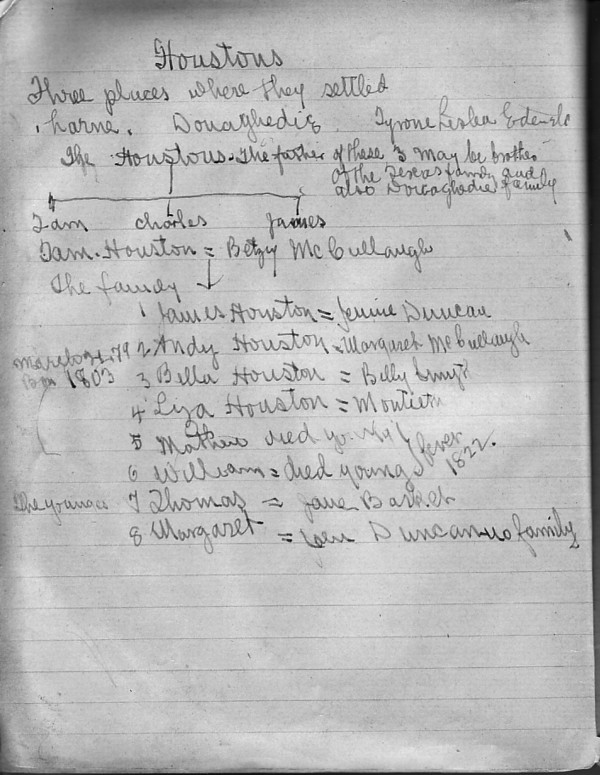 Houstons
Three places where they settled
Larne. Donaghedie Tyrone
The Houstons. The father of these 3 may be brother
of the Texas family and
also Donaghadie family
Sam charles James
Sam. Houston = Betzy McCullaugh
The family
1 James Houston = Jennie Duncan
2 Andy Houston = Margaret McCullaugh
Born 1803 3 Bella Houston = Billy Smyth
4 Liza Houston = Montieth
5 Mathew died young fever
6 William = died young 1822.
The younger 7 Thomas = Jane
8 Margaret = Duncan no family